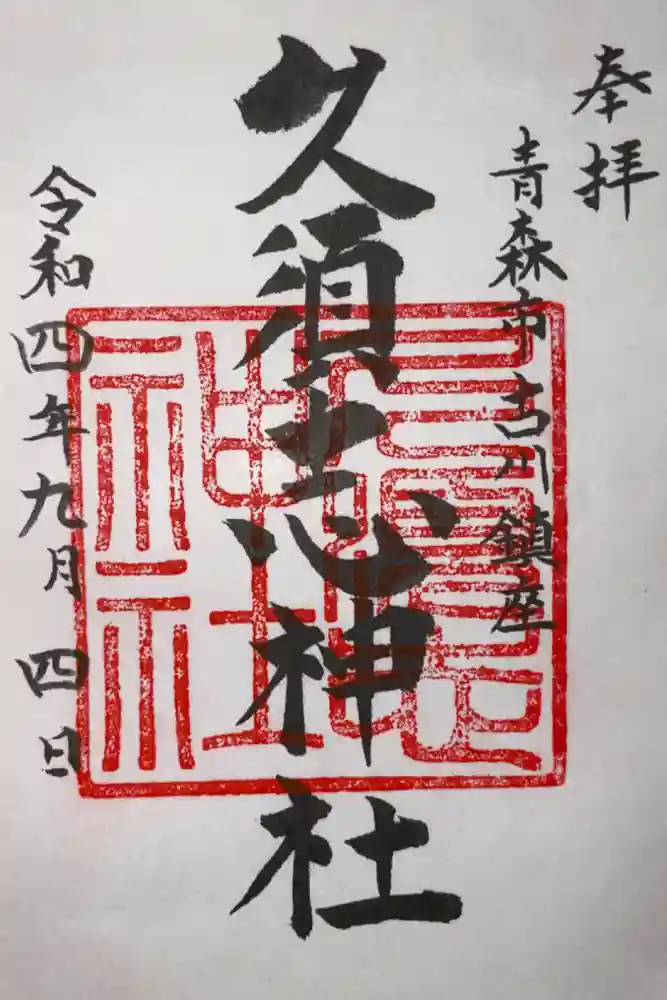 奉拝
青森市古川鎮座
久須志神社
令和四年九月四日